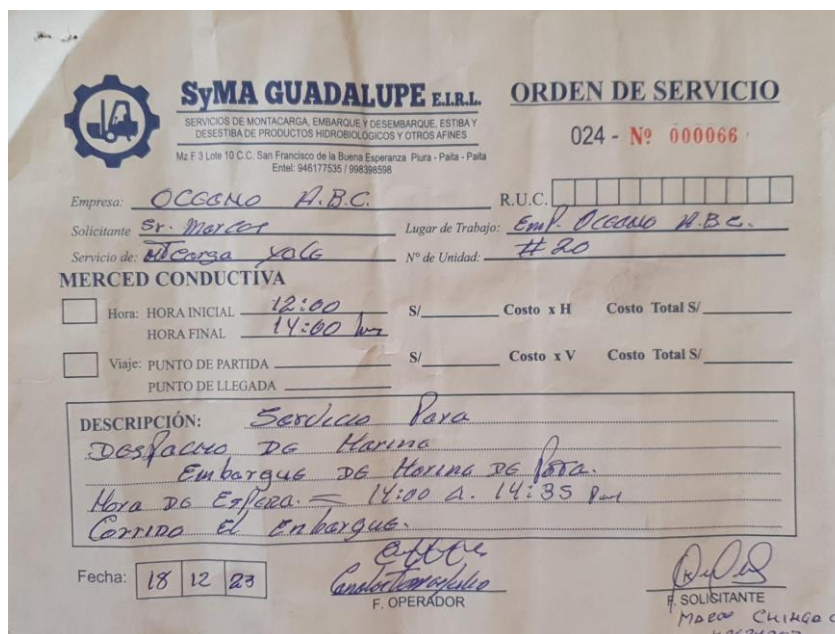 SyMA GUADALUPE E.I.R.L.
SERVICIOS DE MONTACARGA, EMBARQUE Y DESEMBARQUE, ESTIBA Y
DESESTIBA DE PRODUCTOS HIDROBIOLÓGICOS Y OTROS AFINES
Mz F 3 Lote 10 C.C. San Francisco de la Buena Esperanza Piura - Paita - Paita
Entel: 946177535 / 998398598
ORDEN DE SERVICIO
024 - Nº 000066
Empresa: OCEANO A.B.C. R.U.C.
Solicitante Sr. Marcos Lugar de Trabajo: Emp. OCEANO A.B.C.
Servicio de: MTCarga YALE Nº de Unidad: #20
MERCED CONDUCTIVA
Hora: HORA INICIAL 12:00 S/ Costo x H Costo Total S/
HORA FINAL 14:00 hrs
Viaje: PUNTO DE PARTIDA S/ Costo x V Costo Total S/
PUNTO DE LLEGADA
DESCRIPCIÓN: Servicio Para
Despacho DE Harina
Embarque DE Harina DE Pota.
Hora DE Espera = 14:00 A. 14:35 Pm
Corrido El Enbarque.
Fecha: 18 12 23
F. OPERADOR
F. SOLICITANTE
Marco Chinga